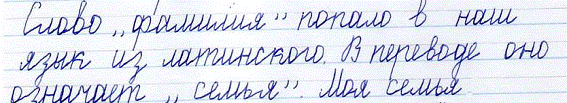 Слово „фамилия" попало в наш
язык из латинского. В переводе оно
означает „семья". Моя семья